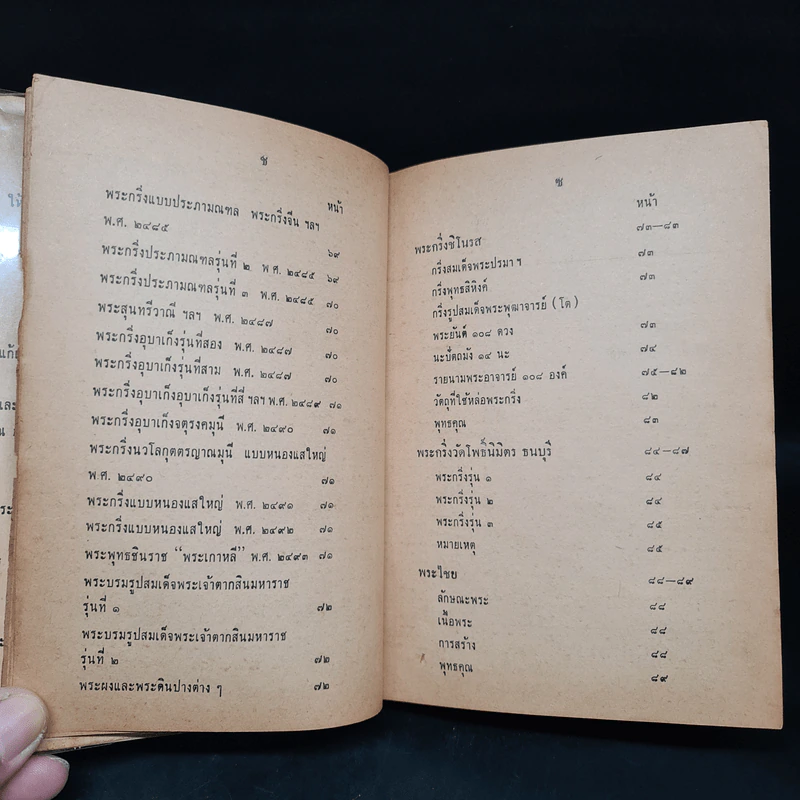 ช
หน้า
พระกริ่งแบบประภามณฑล พระกริ่งจีน ฯลฯ
พ.ศ. ๒๔๘๕ ๖๙
พระกริ่งประภามณฑลรุ่นที่ ๒ พ ศ. ๒๔๘๕ ๖๙
พระกริ่งประภามณฑลรุ่นที่ ๓ พ.ศ. ๒๔๘๕ ๗๐
พระสุนทรีวาณี ฯลฯ พ.ศ. ๒๔๘๗ ๗๐
พระกริ่งอุบาเก็งรุ่นที่สอง พ.ศ. ๒๔๘๗ ๗๐
พระกริ่งอุบาเก็งรุ่นที่สาม พ.ศ. ๒๔๘๗ ๗๐
พระกริ่งอุบาเก็งอุบาเก็งรุ่นที่สี่ ฯลฯ พ.ศ. ๒๔๘๙ ๗๑
พระกริ่งอุบาเก็งจตุรงคมุนี พ.ศ. ๒๔๙๐ ๗๑
พระกริ่งนวโลกุตตรญาณมุนี แบบหนองแสใหญ่
พ.ศ. ๒๔๙๐ ๗๑
พระกริ่งแบบหนองแสใหญ่ พ.ศ. ๒๔๙๑ ๗๑
พระกริ่งแบบหนองแสใหญ่ พ.ศ. ๒๔๙๒ ๗๑
พระพุทธชินราช “พระเกาหลี” พ.ศ. ๒๔๙๓ ๗๑
พระบรมรูปสมเด็จพระเจ้าตากสินมหาราช
รุ่นที่ ๑ ๗๒
พระบรมรูปสมเด็จพระเจ้าตากสินมหาราช
รุ่นที่ ๒ ๗๒
พระผงและพระดินปางต่าง ๆ ๗๒
ซ
หน้า
พระกริ่งชิโนรส ๗๓—๘๓
กริ่งสมเด็จพระปรมาฯ ๗๓
กริ่งพุทธสิหิงค์ ๗๓
กริ่งรูปสมเด็จพระพุฒาจารย์ (โต)
พระยันต์ ๑๐๘ ดวง ๗๓
นะปัตถมัง ๑๔ นะ ๗๔
รายนามพระอาจารย์ ๑๐๘ องค์ ๗๕—๘๒
วัตถุที่ใช้หล่อพระกริ่ง ๘๒
พุทธคุณ ๘๓
พระกริ่งวัดโพธิ์นิมิตร ธนบุรี ๘๔—๘๗
พระกริ่งรุ่น ๑ ๘๔
พระกริ่งรุ่น ๒ ๘๔
พระกริ่งรุ่น ๓ ๘๕
หมายเหตุ ๘๕
พระไชย ๘๘—๘๙
ลักษณะพระ ๘๘
เนื้อพระ ๘๘
การสร้าง ๘๘
พุทธคุณ ๘๙